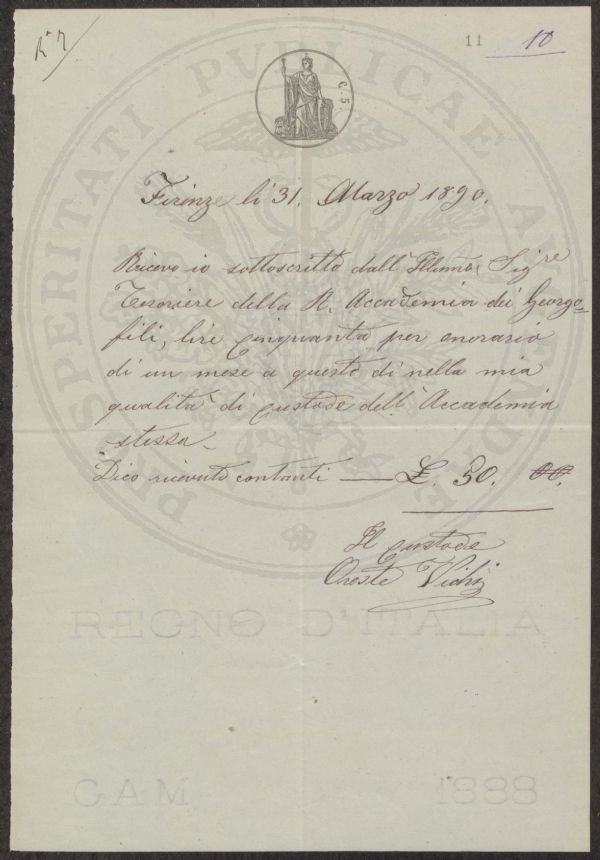 11 10
C. 5
Firenze li 31. Marzo 1890.
Ricevo io sottoscritto dall' Illmo Sigre
Tesoriere della R. Accademia dei Georgo-
fili, lire cinquanta per onorario
di un mese a questo dì nella mia
qualità di custode dell' Accademia
stessa -
Dico ricevuto contanti — £. 50. 00.
Il custode
Oreste
PROSPERITATI PVBLICAE AVGENDAE
REGNO D'ITALIA
GAM 1888